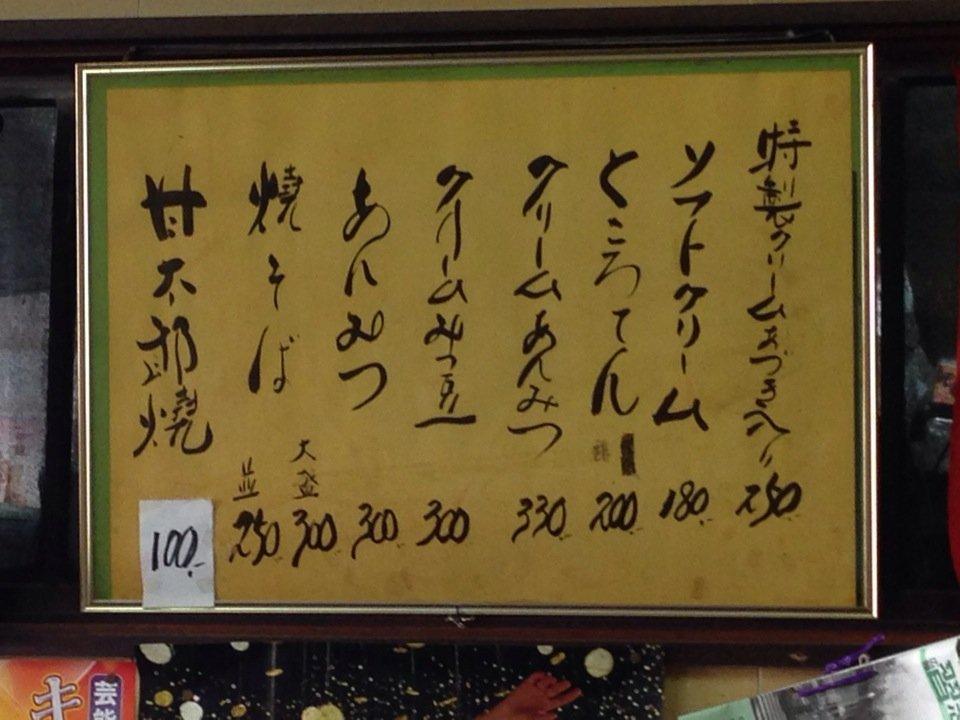 特製クリームあづき入り 250
ソフトクリーム 180
ところてん 200
クリームあんみつ 330
クリームみつ豆 300
あんみつ 300
焼そば 大盛 300
並 250
甘太郎焼 100.-
キ
芸能